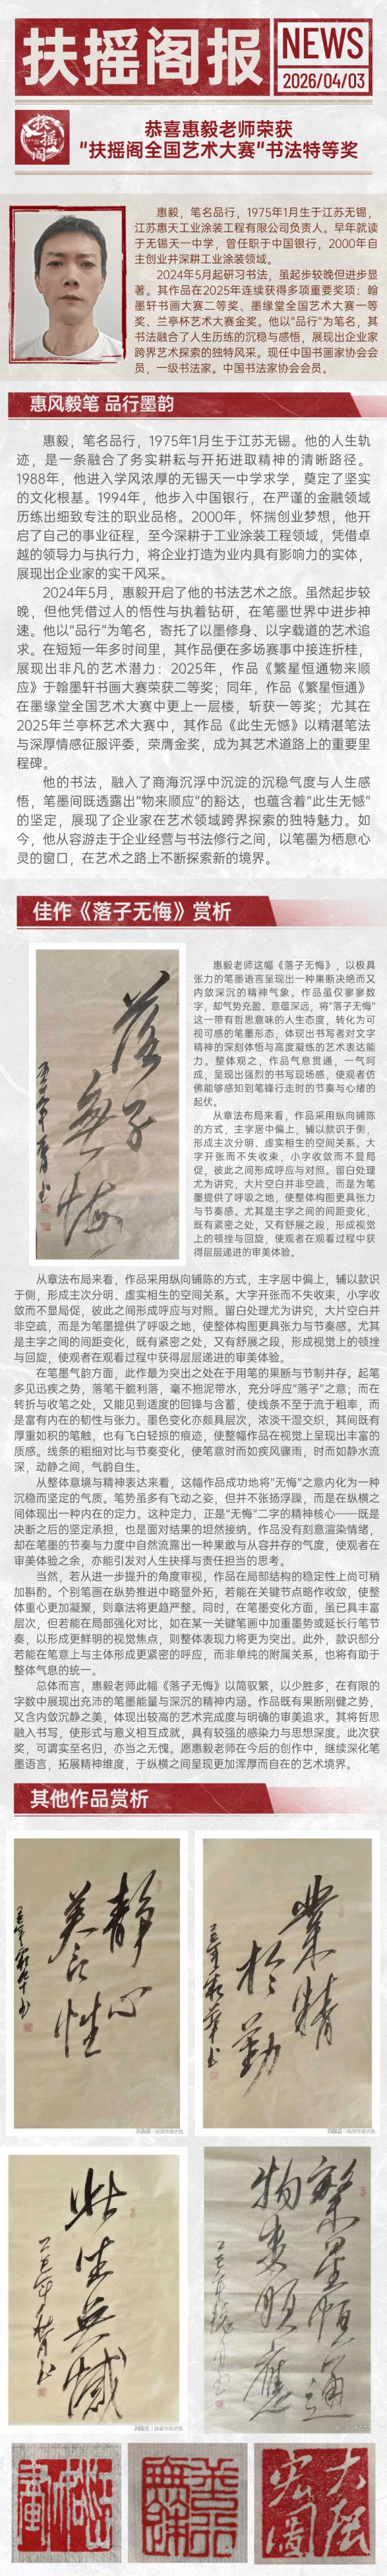 扶摇阁报
NEWS
2026/04/03
扶摇阁
恭喜惠毅老师荣获
"扶摇阁全国艺术大赛"书法特等奖
惠毅，笔名品行，1975年1月生于江苏无锡，
江苏惠天工业涂装工程有限公司负责人。早年就读
于无锡天一中学，曾任职于中国银行，2000年自
主创业并深耕工业涂装领域。
2024年5月起研习书法，虽起步较晚但进步显
著。其作品在2025年连续获得多项重要奖项：翰
墨轩书画大赛二等奖、墨缘堂全国艺术大赛一等
奖、兰亭杯艺术大赛金奖。他以"品行"为笔名，其
书法融合了人生历练的沉稳与感悟，展现出企业家
跨界艺术探索的独特风采。现任中国书画家协会会
员，一级书法家。中国书法家协会会员。
惠风毅笔 品行墨韵
惠毅，笔名品行，1975年1月生于江苏无锡。他的人生轨
迹，是一条融合了务实耕耘与开拓进取精神的清晰路径。
1988年，他进入学风浓厚的无锡天一中学求学，奠定了坚实
的文化根基。1994年，他步入中国银行，在严谨的金融领域
历练出细致专注的职业品格。2000年，怀揣创业梦想，他开
启了自己的事业征程，至今深耕于工业涂装工程领域，凭借卓
越的领导力与执行力，将企业打造为业内具有影响力的实体，
展现出企业家的实干风采。
2024年5月，惠毅开启了他的书法艺术之旅。虽然起步较
晚，但他凭借过人的悟性与执着钻研，在笔墨世界中进步神
速。他以"品行"为笔名，寄托了以墨修身、以字载道的艺术追
求。在短短一年多时间里，其作品便在多场赛事中接连折桂，
展现出非凡的艺术潜力：2025年，作品《繁星恒通物来顺
应》于翰墨轩书画大赛荣获二等奖；同年，作品《繁星恒通》
在墨缘堂全国艺术大赛中更上一层楼，斩获一等奖；尤其在
2025年兰亭杯艺术大赛中，其作品《此生无憾》以精湛笔法
与深厚情感征服评委，荣膺金奖，成为其艺术道路上的重要里
程碑。
他的书法，融入了商海沉浮中沉淀的沉稳气度与人生感
悟，笔墨间既透露出"物来顺应"的豁达，也蕴含着"此生无憾"
的坚定，展现了企业家在艺术领域跨界探索的独特魅力。如
今，他从容游走于企业经营与书法修行之间，以笔墨为栖息心
灵的窗口，在艺术之路上不断探索新的境界。
佳作《落子无悔》赏析
落子
無悔
惠毅老师这幅《落子无悔》，以极具
张力的笔墨语言呈现出一种果断决绝而又
内敛深沉的精神气象。作品虽仅寥寥数
字，却气势充盈、意蕴深远，将"落子无悔"
这一带有哲思意味的人生态度，转化为可
视可感的笔墨形态，体现出书写者对文字
精神的深刻体悟与高度凝练的艺术表达能
力。整体观之，作品气息贯通，一气呵
成，呈现出强烈的书写现场感，使观者仿
佛能够感知到笔锋行走时的节奏与心绪的
起伏。
从章法布局来看，作品采用纵向铺陈
的方式，主字居中偏上，辅以款识于侧，
形成主次分明、虚实相生的空间关系。大
字开张而不失收束，小字收敛而不显局
促，彼此之间形成呼应与对照。留白处理
尤为讲究，大片空白并非空疏，而是为笔
墨提供了呼吸之地，使整体构图更具张力
与节奏感。尤其是主字之间的间距变化，
既有紧密之处，又有舒展之段，形成视觉
上的顿挫与回旋，使观者在观看过程中获
得层层递进的审美体验。
从章法布局来看，作品采用纵向铺陈的方式，主字居中偏上，辅以款识
于侧，形成主次分明、虚实相生的空间关系。大字开张而不失收束，小字收
敛而不显局促，彼此之间形成呼应与对照。留白处理尤为讲究，大片空白并
非空疏，而是为笔墨提供了呼吸之地，使整体构图更具张力与节奏感。尤其
是主字之间的间距变化，既有紧密之处，又有舒展之段，形成视觉上的顿挫
与回旋，使观者在观看过程中获得层层递进的审美体验。
在笔墨气韵方面，此作最为突出之处在于用笔的果断与节制并存。起笔
多见迅疾之势，落笔干脆利落，毫不拖泥带水，充分呼应"落子"之意；而在
转折与收笔之处，又能见到适度的回锋与含蓄，使线条不至于流于粗率，而
是富有内在的韧性与张力。墨色变化亦颇具层次，浓淡干湿交织，其间既有
厚重如积的笔触，也有飞白轻掠的痕迹，使整幅作品在视觉上呈现出丰富的
质感。线条的粗细对比与节奏变化，使笔意时而如疾风骤雨，时而如静水流
深，动静之间，气韵自生。
从整体意境与精神表达来看，这幅作品成功地将"无悔"之意内化为一种
沉稳而坚定的气质。笔势虽多有飞动之姿，但并不张扬浮躁，而是在纵横之
间体现出一种内在的定力。这种定力，正是"无悔"二字的精神核心——既是
决断之后的坚定承担，也是面对结果的坦然接纳。作品没有刻意渲染情绪，
却在笔墨的节奏与力度中自然流露出一种果敢与从容并存的气度，使观者在
审美体验之余，亦能引发对人生抉择与责任担当的思考。
当然，若从进一步提升的角度审视，作品在局部结构的稳定性上尚可稍
加斟酌。个别笔画在纵势推进中略显外拓，若能在关键节点略作收敛，使整
体重心更加凝聚，则章法将更趋严整。同时，在笔墨变化方面，虽已具丰富
层次，但若能在局部强化对比，如在某一关键笔画中加重墨势或延长行笔节
奏，以形成更鲜明的视觉焦点，则整体表现力将更为突出。此外，款识部分
若能在笔意上与主体形成更紧密的呼应，而非单纯的附属关系，也将有助于
整体气息的统一。
总体而言，惠毅老师此幅《落子无悔》以简驭繁，以少胜多，在有限的
字数中展现出充沛的笔墨能量与深沉的精神内涵。作品既有果断刚健之势，
又含内敛沉静之美，体现出较高的艺术完成度与明确的审美追求。其将哲思
融入书写，使形式与意义相互成就，具有较强的感染力与思想深度。此次获
奖，可谓实至名归，亦当之无愧。愿惠毅老师在今后的创作中，继续深化笔
墨语言，拓展精神维度，于纵横之间呈现更加浑厚而自在的艺术境界。
其他作品赏析
静心
美言性
業精
於勤
此生無憾
繁星恒通
物来順應
大展
宏圖